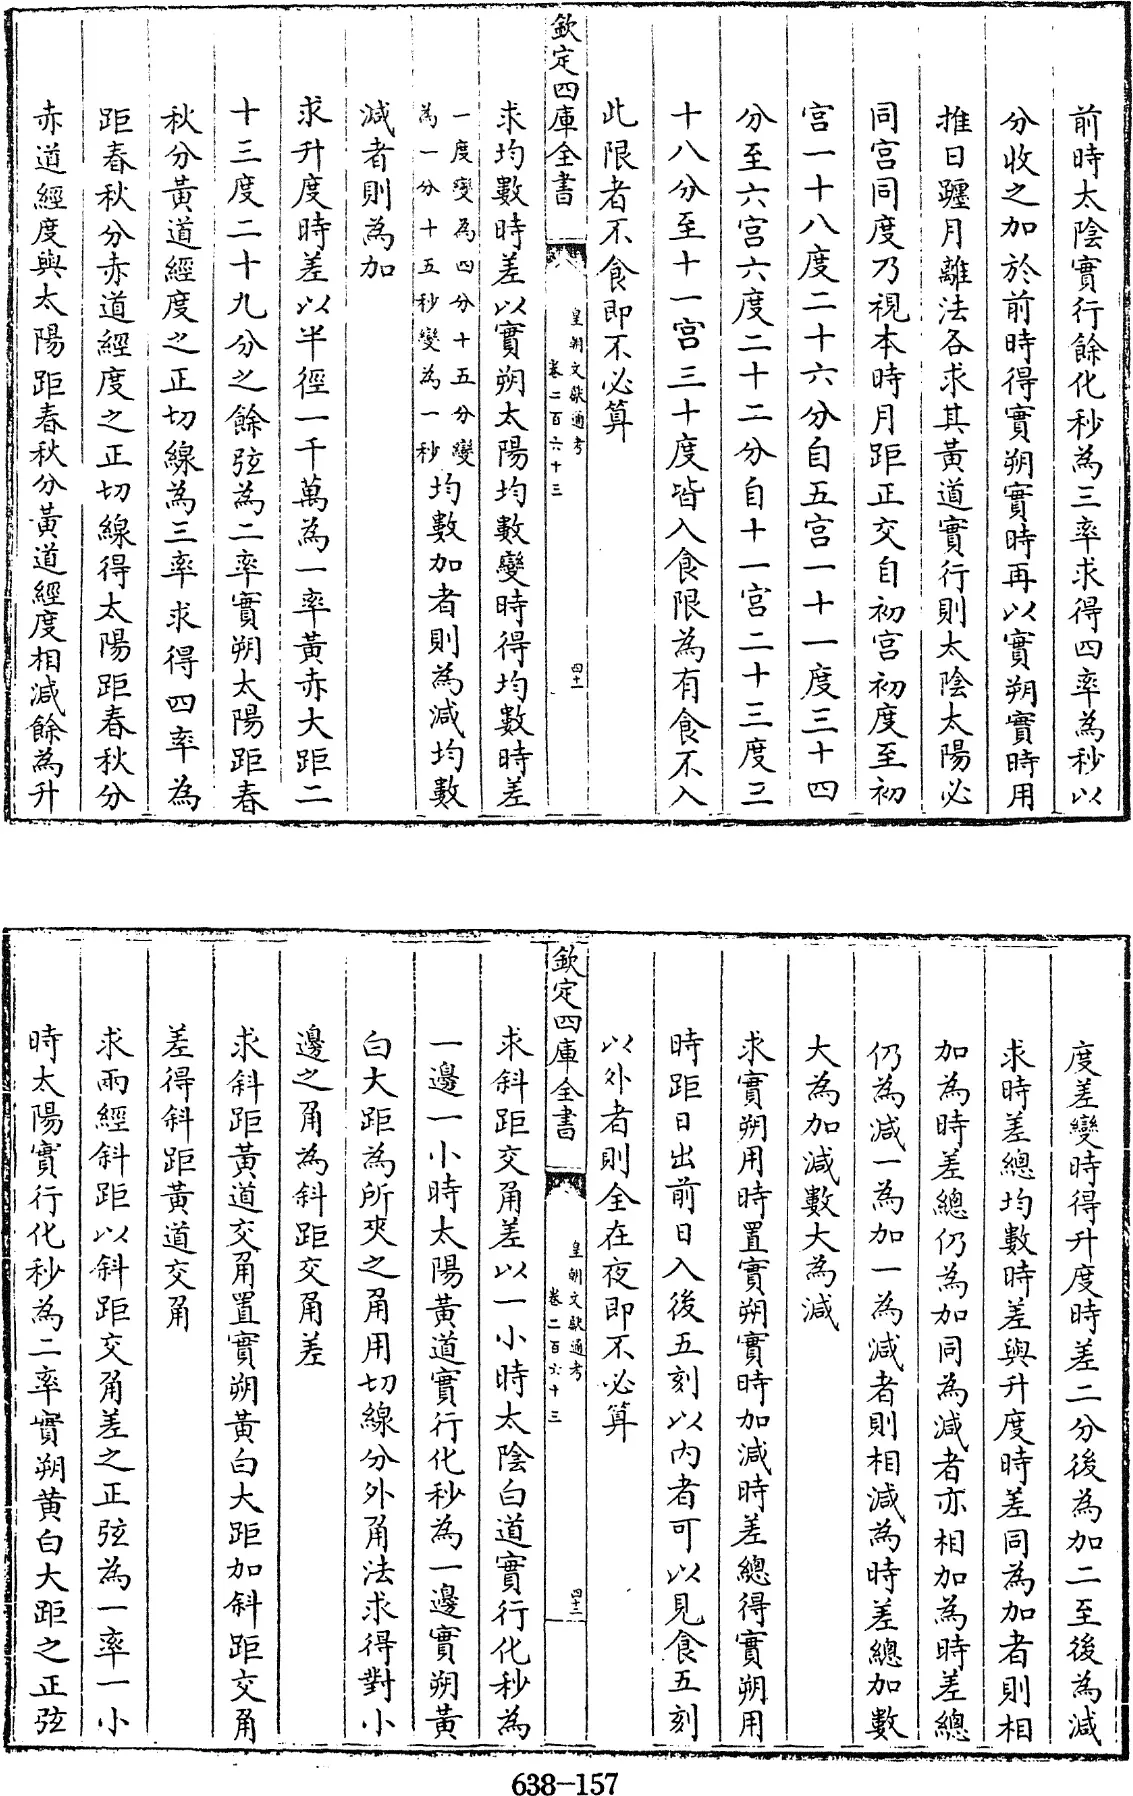 前時太陰實行餘化秒為三率求得四率為秒以
分收之加於前時得實朔實時再以實朔實時用
推日躔月離法各求其黃道實行則太陰太陽必
同宮同度乃視本時月距正交自初宮初度至初
宮一十八度二十六分自五宮一十一度三十四
分至六宮六度二十二分自十一宮二十三度三
十八分至十一宮三十度皆入食限為有食不入
此限者不食即不必算
欽定四庫全書
皇朝文獻通考
卷二百六十三
四十一
求均數時差以實朔太陽均數變時得均數時差
一度變為四分十五分變
為一分十五秒變為一秒
均數加者則為減均數
減者則為加
求升度時差以半徑一千萬為一率黃赤大距二
十三度二十九分之餘弦為二率實朔太陽距春
秋分黃道經度之正切線為三率求得四率為
距春秋分赤道經度之正切線得太陽距春秋分
赤道經度與太陽距春秋分黃道經度相減餘為升
度差變時得升度時差二分後為加二至後為減
求時差總均數時差與升度時差同為加者則相
加為時差總仍為加同為減者亦相加為時差總
仍為減一為加一為減者則相減為時差總加數
大為加減數大為減
求實朔用時置實朔實時加減時差總得實朔用
時距日出前日入後五刻以內者可以見食五刻
以外者則全在夜即不必算
欽定四庫全書
皇朝文獻通考
卷二百六十三
四十二
求斜距交角差以一小時太陰白道實行化秒為
一邊一小時太陽黃道實行化秒為一邊實朔黃
白大距為所夾之角用切線分外角法求得對小
邊之角為斜距交角差
求斜距黃道交角置實朔黃白大距加斜距交角
差得斜距黃道交角
求兩經斜距以斜距交角差之正弦為一率一小
時太陽實行化秒為二率實朔黃白大距之正弦
638-157